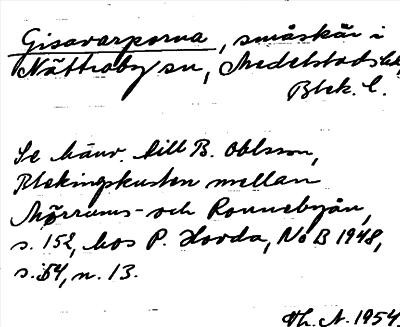 Gisavarporna, småskär i
Nättraby sn, Medelstads hd,
Blek. l.
Se hänv. till B. Ohlsson,
Blekingskusten mellan
Mörrums- och Ronnebyån,
s. 152, hos P. Hovda, NoB 1948,
s. 54, n. 13.
Th. A. 1954.